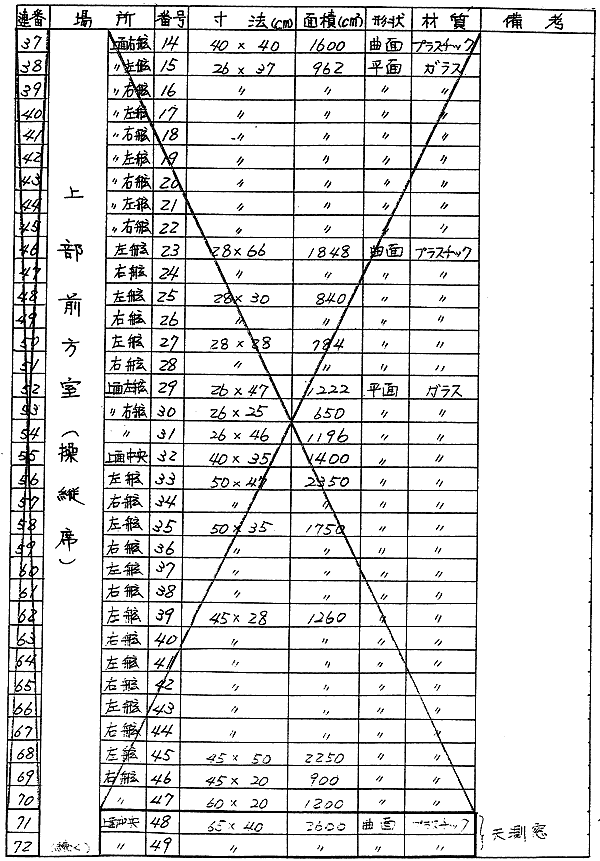 連番 場所 番号 寸法(cm) 面積(cm²) 形状 材質 備考
上部前方室(操縦席)
37 上面右舷 14 40×40 1600 曲面 プラスチック
38 〃左舷 15 26×37 962 平面 ガラス
39 〃右舷 16 〃 〃 〃 〃
40 〃左舷 17 〃 〃 〃 〃
41 〃右舷 18 〃 〃 〃 〃
42 〃左舷 19 〃 〃 〃 〃
43 〃右舷 20 〃 〃 〃 〃
44 〃左舷 21 〃 〃 〃 〃
45 〃右舷 22 〃 〃 〃 〃
46 左舷 23 28×66 1848 曲面 プラスチック
47 右舷 24 〃 〃 〃 〃
48 左舷 25 28×30 840 〃 〃
49 右舷 26 〃 〃 〃 〃
50 左舷 27 28×28 784 〃 〃
51 右舷 28 〃 〃 〃 〃
52 上面左舷 29 26×47 1222 平面 ガラス
53 〃右舷 30 26×25 650 〃 〃
54 〃 31 26×46 1196 〃 〃
55 上面中央 32 40×35 1400 〃 〃
56 左舷 33 50×47 2350 〃 〃
57 右舷 34 〃 〃 〃 〃
58 左舷 35 50×35 1750 〃 〃
59 右舷 36 〃 〃 〃 〃
60 左舷 37 〃 〃 〃 〃
61 右舷 38 〃 〃 〃 〃
62 左舷 39 45×28 1260 〃 〃
63 右舷 40 〃 〃 〃 〃
64 左舷 41 〃 〃 〃 〃
65 右舷 42 〃 〃 〃 〃
66 左舷 43 〃 〃 〃 〃
67 右舷 44 〃 〃 〃 〃
68 左舷 45 45×50 2250 〃 〃
69 右舷 46 45×20 900 〃 〃
70 〃 47 60×20 1200 〃 〃
71 上面中央 48 65×40 2600 曲面 プラスチック 天測窓
72 (続く) 〃 49 〃 〃 〃 〃